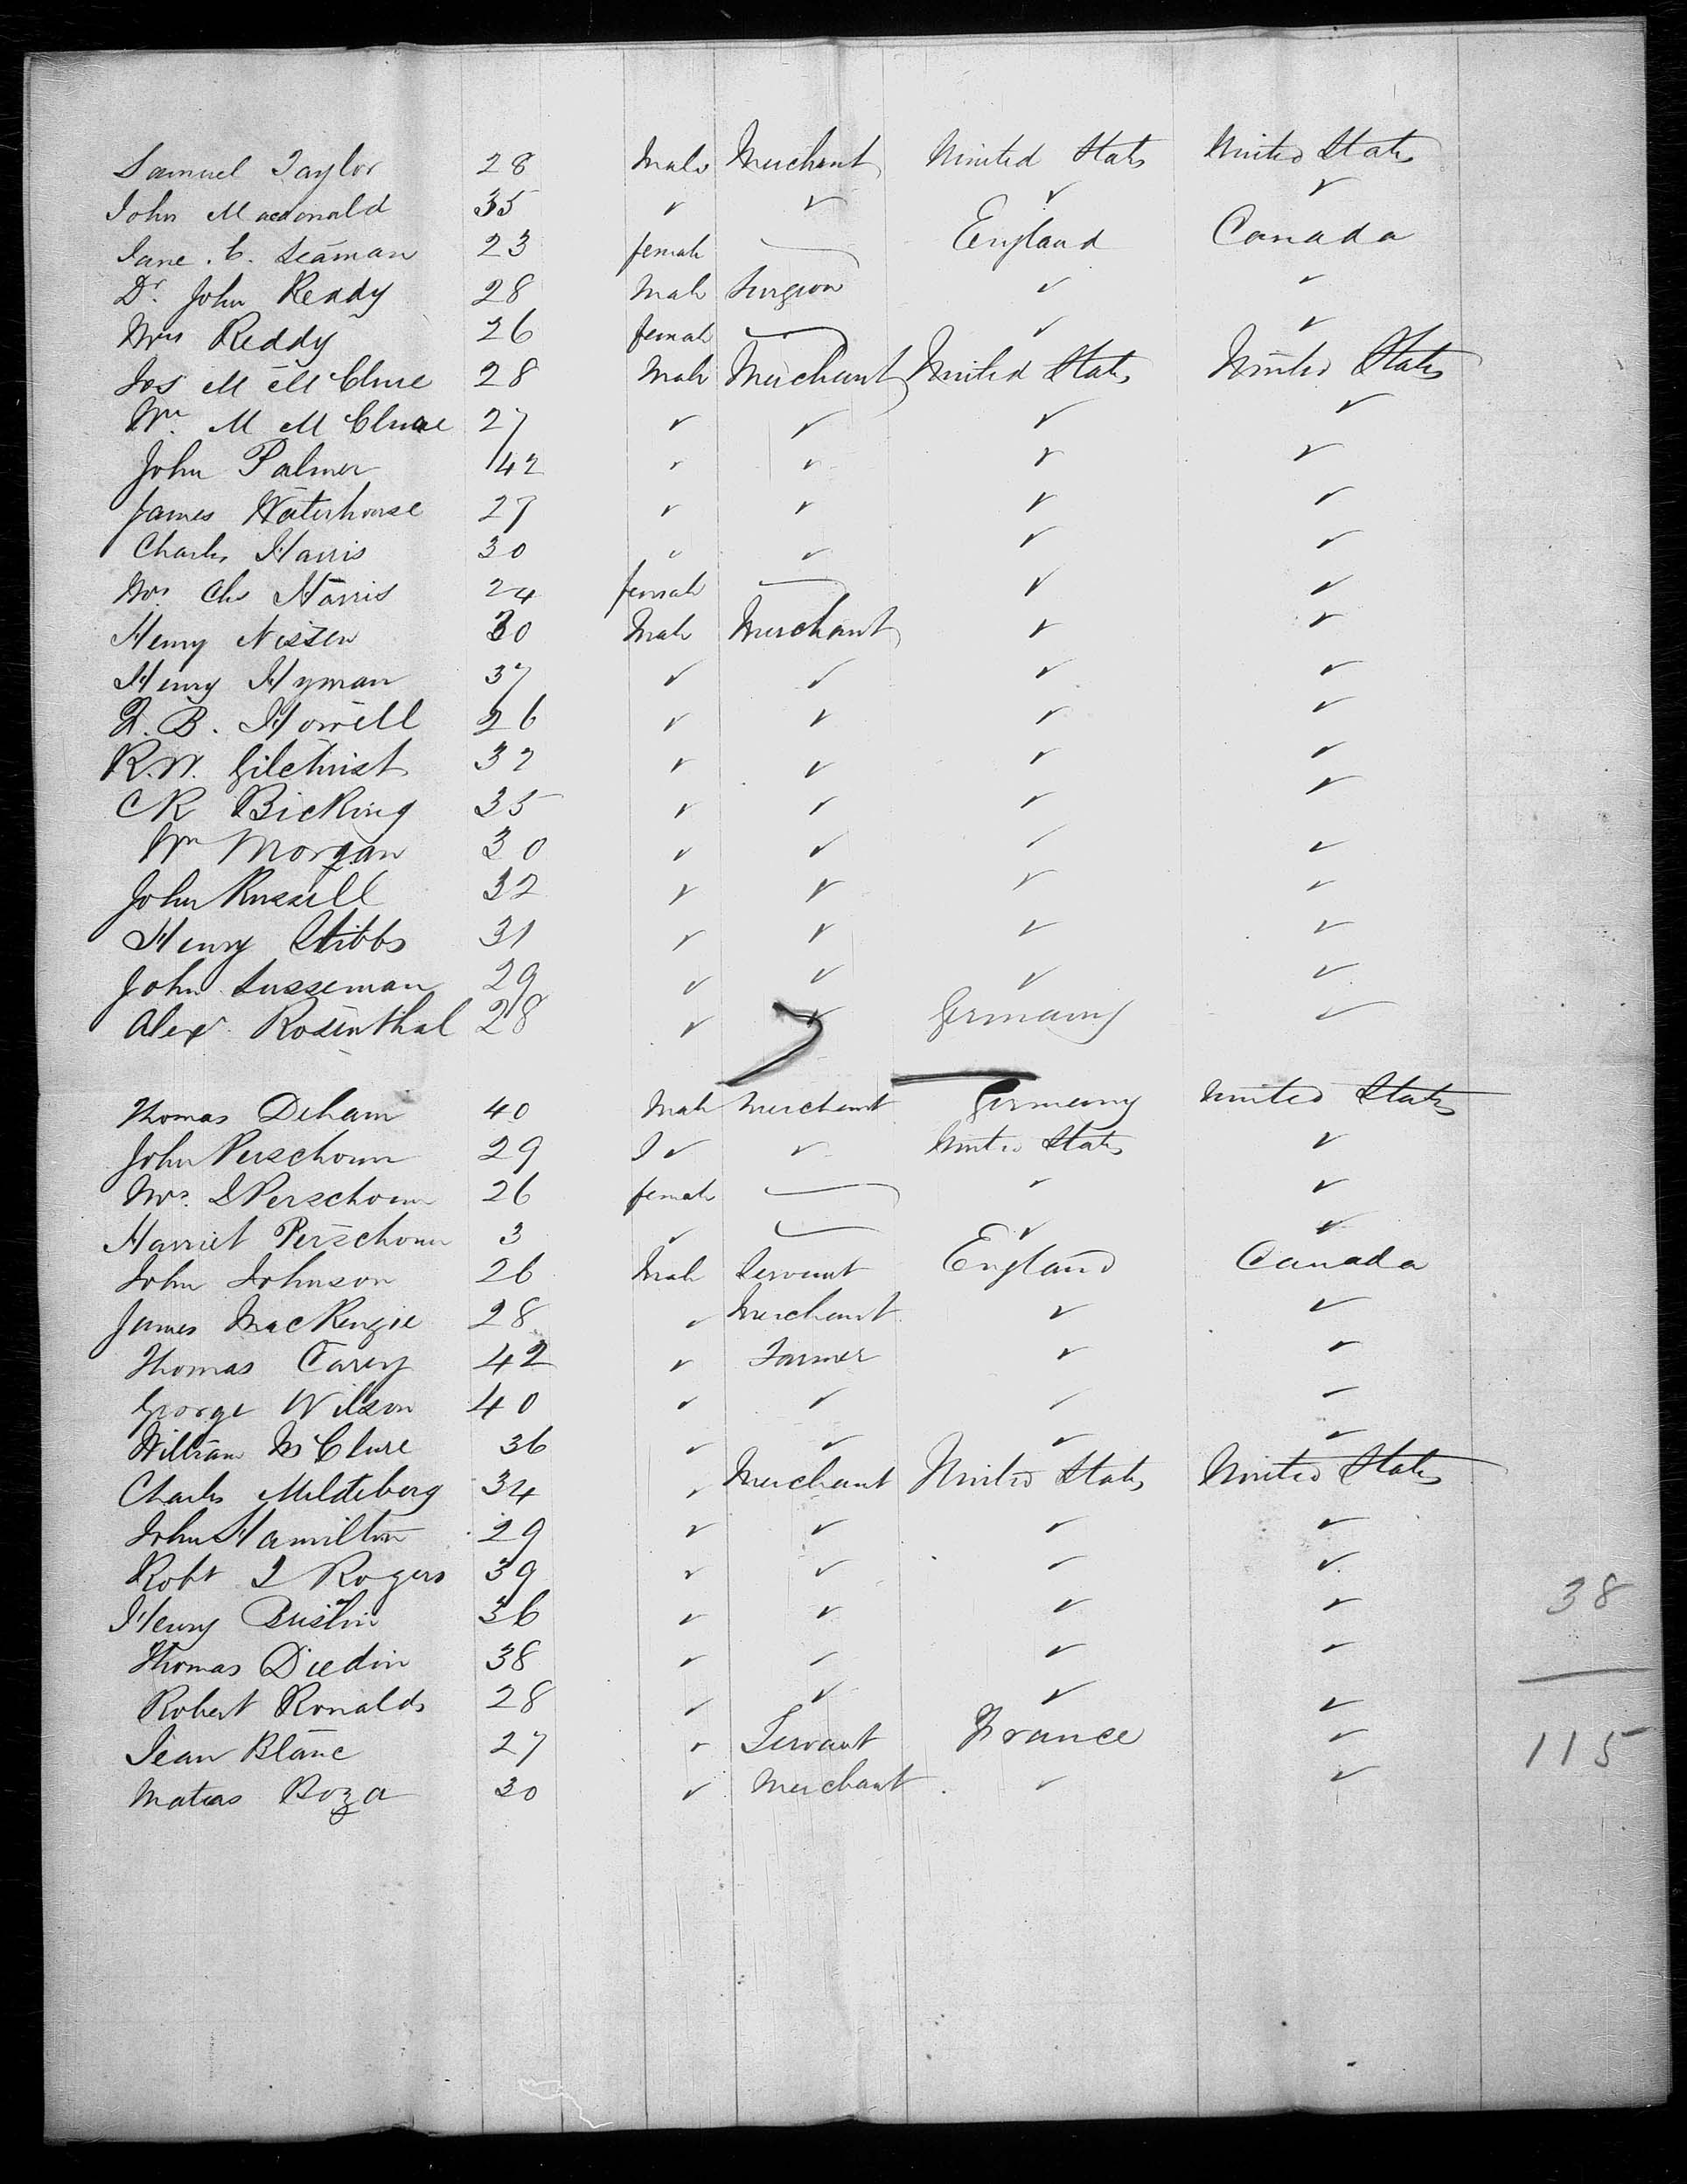 Samuel Taylor 28 Male Merchant United States United States
John Macdonald 35 ✓ ✓ ✓ ✓
Jane. C. Seaman 23 female — England Canada
Dr. John Reddy 28 Male Surgeon ✓ ✓
Mrs Reddy 26 female — ✓ ✓
Jos M McClure 28 Male Merchant United States United States
Wm. M McClure 27 ✓ ✓ ✓ ✓
John Palmer 42 ✓ ✓ ✓ ✓
James Waterhouse 27 ✓ ✓ ✓ ✓
Charles Harris 30 ✓ ✓ ✓ ✓
Mrs Chs Harris 24 female — ✓ ✓
Henry Nissen 30 Male Merchant ✓ ✓
Henry Hyman 37 ✓ ✓ ✓ ✓
B. Howell 26 ✓ ✓ ✓ ✓
R.W. Gilchrist 32 ✓ ✓ ✓ ✓
CR Bicking 35 ✓ ✓ ✓ ✓
Wm Morgan 30 ✓ ✓ ✓ ✓
John Russell 32 ✓ ✓ ✓ ✓
Henry Stibbs 31 ✓ ✓ ✓ ✓
John Susseman 29 ✓ ✓ ✓ ✓
Alexr. Rosenthal 28 ✓ ✓ Germany ✓
Thomas Deham 40 Male Merchant Germany United States
John Perschoun 29 ✓ ✓ United States ✓
Mrs. Perschoun 26 female — ✓ ✓
Harriet Perschoun 3 ✓ — ✓ ✓
John Johnson 26 Male Servant England Canada
James MacKenzie 28 ✓ Merchant ✓ ✓
Thomas Carey 42 ✓ Farmer ✓ ✓
George Wilson 40 ✓ ✓ ✓ ✓
William McClure 36 ✓ ✓ ✓ ✓
Charles Mildeberg 34 ✓ Merchant United States United States
John Hamilton 29 ✓ ✓ ✓ ✓
Robt J Rogers 39 ✓ ✓ ✓ ✓
Henry 36 ✓ ✓ ✓ ✓ 38
Thomas Diedin 38 ✓ ✓ ✓ ✓
Robert Ronalds 28 ✓ ✓ ✓ ✓
Jean Blanc 27 ✓ Servant France ✓ 115
Matias Boza 30 ✓ Merchant ✓ ✓